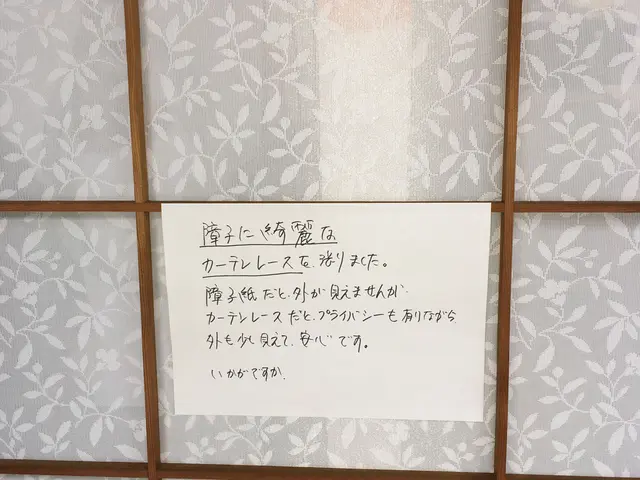 障子に綺麗な
カーテンレースを、張りました。
障子紙だと、外が見えませんが、
カーテンレースだと、プライバシーも有りながら、
外も少し見えて、安心です。
いかがですか。